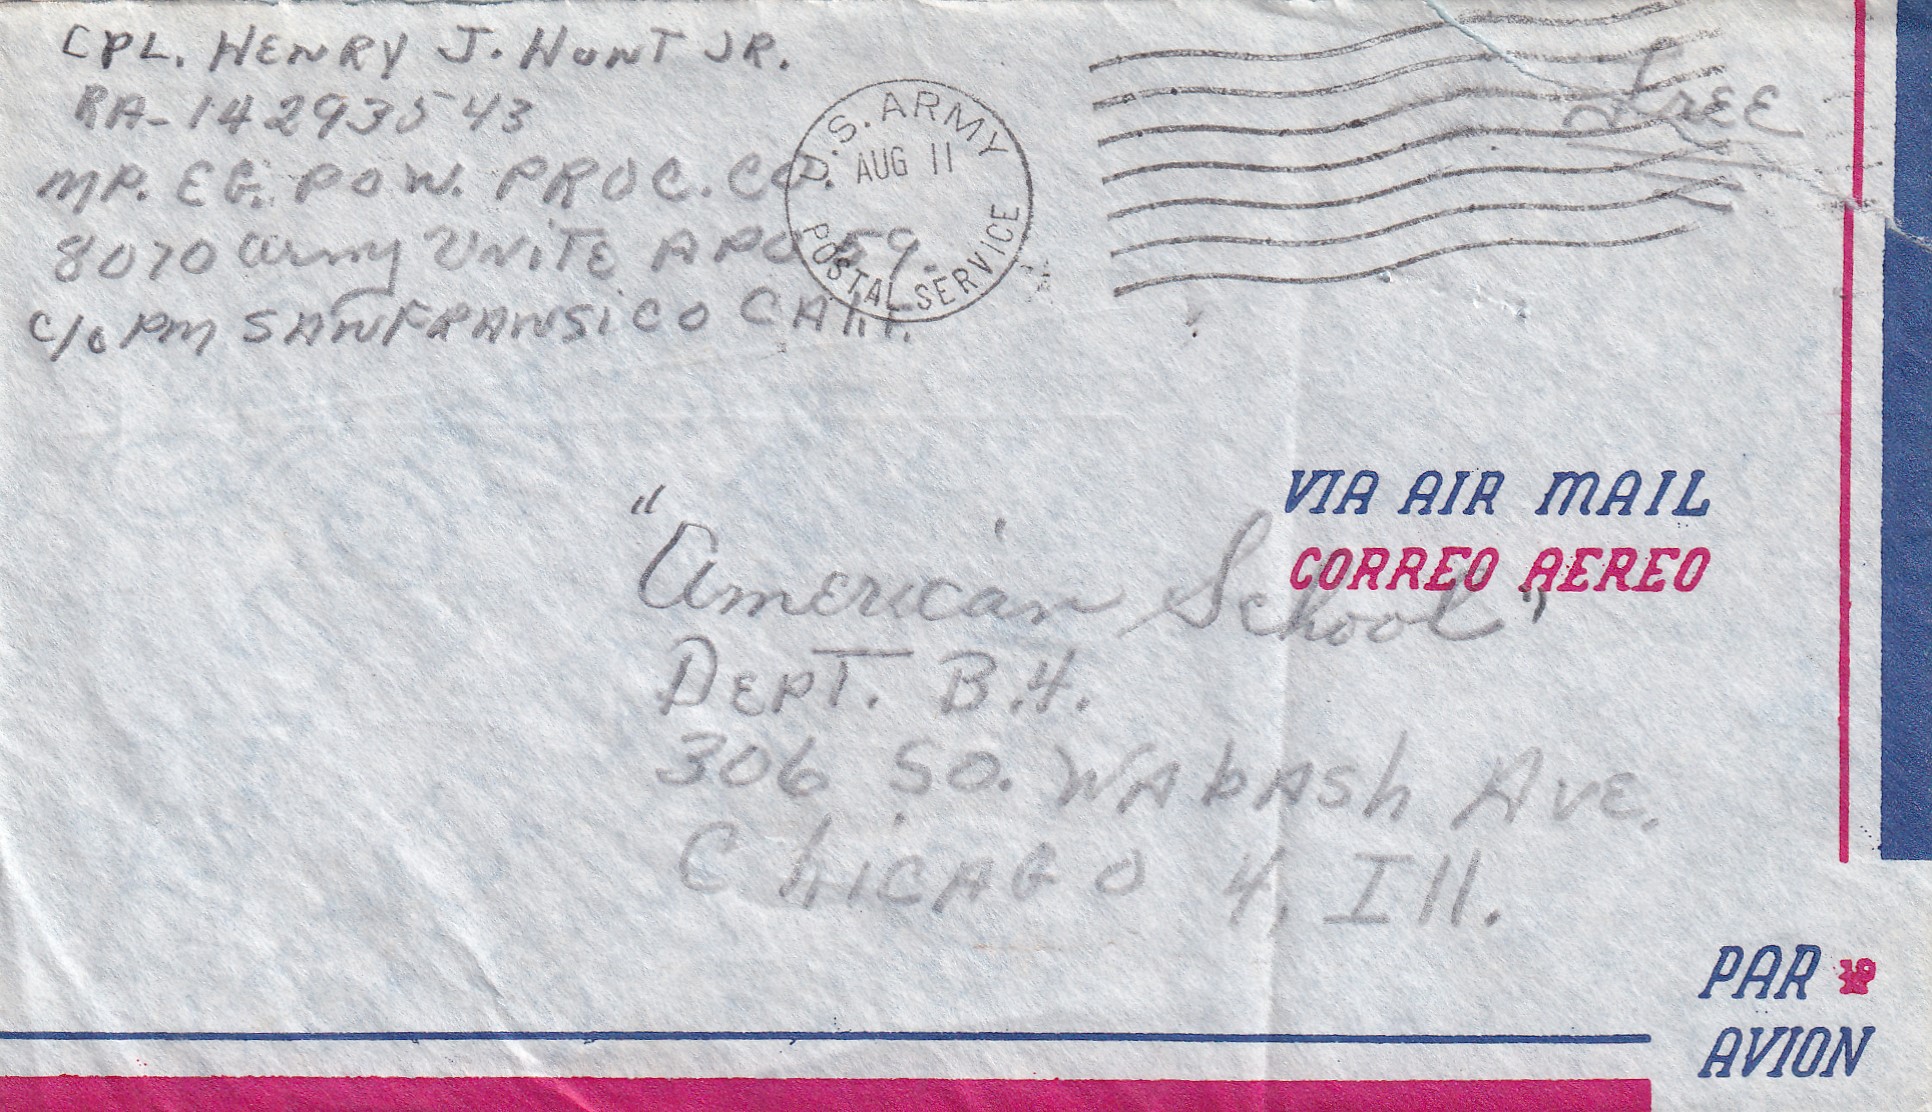 CPL. HENRY J. HUNT JR.
RA-14293543
MP. EG. POW. PROC. CO.
8070 army UNITE APO 59.
c/o PM SANFRANSICO CALIF.
U.S. ARMY
AUG 11
POSTAL SERVICE
Free
VIA AIR MAIL
CORREO AEREO
"American School"
DEPT. B.4.
306 SO. WAbASh AvE.
ChiCAGO 4, Ill.
PAR
AVION